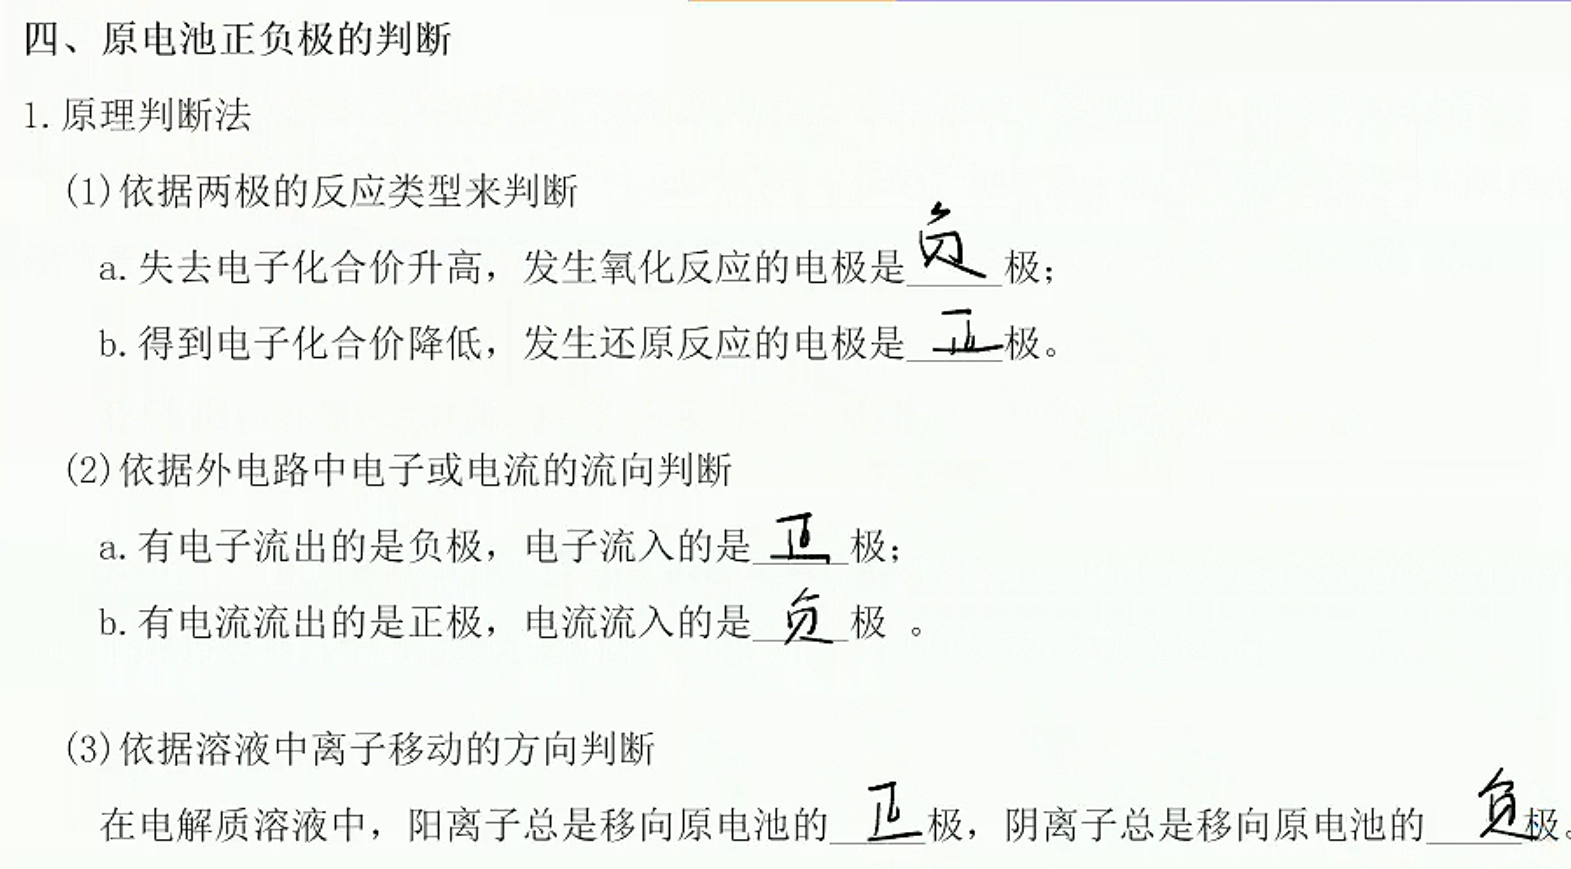 四、原电池正负极的判断
1.原理判断法
(1)依据两极的反应类型来判断
a.失去电子化合价升高，发生氧化反应的电极是负极；
b.得到电子化合价降低，发生还原反应的电极是正极。
(2)依据外电路中电子或电流的流向判断
a.有电子流出的是负极，电子流入的是正极；
b.有电流流出的是正极，电流流入的是负极 。
(3)依据溶液中离子移动的方向判断
在电解质溶液中，阳离子总是移向原电池的正极，阴离子总是移向原电池的负极。